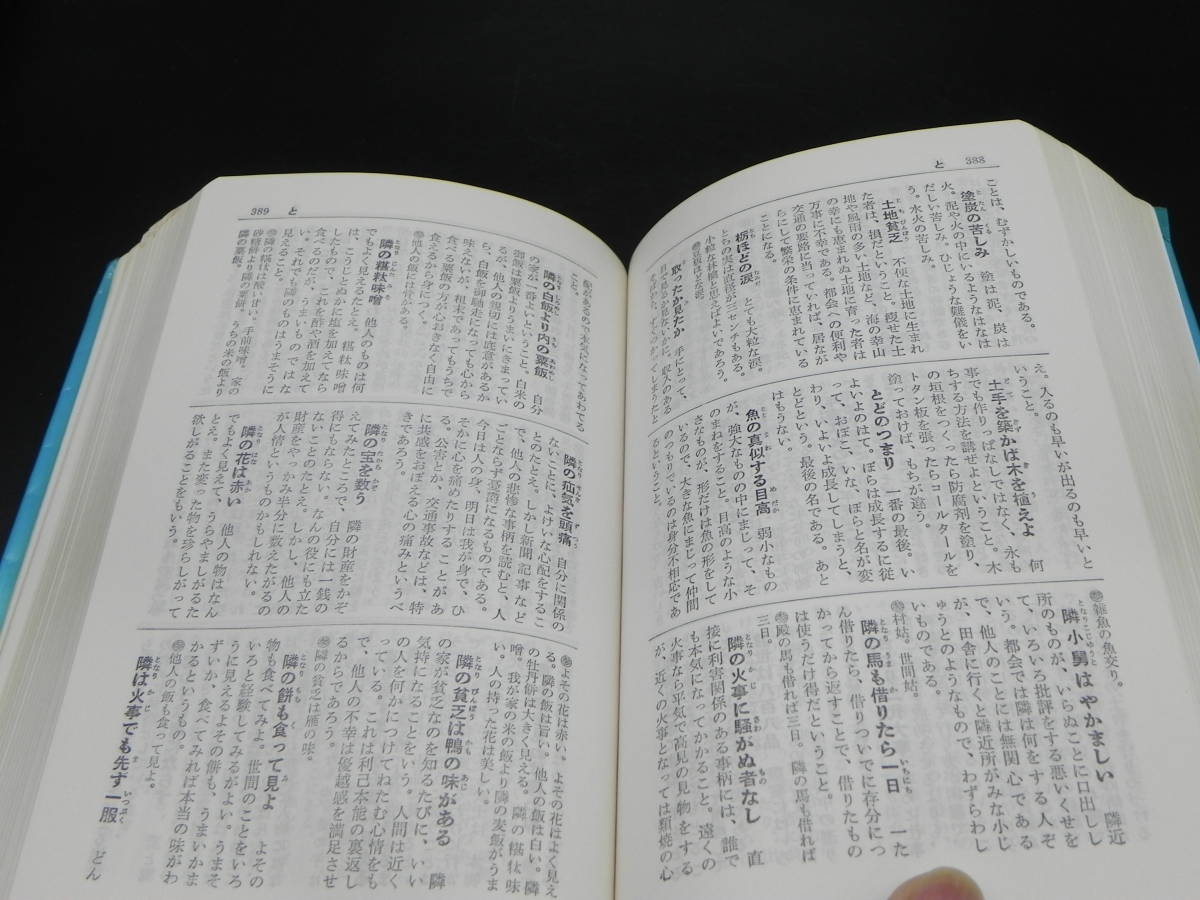 と 388
ことは、むずかしいものである。
塗炭の苦しみ 塗は泥、炭は
火。泥や火の中にいるようなはなは
だしい苦しみ。ひじょうな難儀をい
う。水火の苦しみ。
土地貧乏 不便な土地に生まれ
た者は、損だということ。痩せた土
地や風雨の多い土地など、海の幸山
の幸にも恵まれぬ土地に育った者は
万事に不幸である。都会への便利や
交通の要路に当っていれば、居なが
らにして繁栄の条件に恵まれている
ことになる。
栃ほどの涙 とても大粒な涙。
とちの実は直径が三センチもある。
小粒な林檎と思えばよいであろう。
取ったか見たか 手にとって、
え。入るのも早いが出るのも早いと
いうこと。
土手を築かば木を植えよ 何
事でも作りっぱなしではなく、永も
ちする方法を講ぜよということ。木
の垣根をつくったら防腐剤を塗り、
トタン板を張ったらコールタールを
塗っておけば、もちが違う。
とどのつまり 一番の最後。い
よいよのはて。ぼらは成長するに従
って、おぼこ、いな、ぼらと名が変
わり、いよいよ成長してしまうと、
とどという。最後の名である。あと
はもうない。
魚の真似する目高 弱小なもの
が、強大なものの中にまじって、そ
のまねをすること。目高のような小
さなものが、形だけは魚の形をして
いるので、大きな魚にまじって仲間
のつもりでいるのは身分不相応であ
るということ。
雑魚の魚交り。
隣小舅はやかましい 隣近
所のものが、いらぬことに口出しし
て、いろいろ批評をする悪いくせを
いう。都会では隣は何をする人ぞ
で、他人のことには無関心である
が、田舎に行くと隣近所がみな小じ
ゅうとのようなもので、わずらわし
いものである。
村姑。世間姑。
隣の馬も借りたら一日 一た
ん借りたら、借りついでに存分につ
かってから返すことで、借りたもの
は使うだけ得だということ。
殿の馬も借れば三日。隣の馬も借れば
三日。
隣の火事に騒がぬ者なし 直
接に利害関係のある事柄には、誰で
も本気になってかかること。遠くの
火事なら平気で高見の見物をする
が、近くの火事となっては類焼の心
389 と
配があるので本気になってあわてる
こと。
隣の白飯より内の粟飯 自分
の家が一番よいということ。白米の
御飯は粟飯よりうまいにきまってい
るが、他人の親切には底意があるか
ら、白飯を御馳走になっても心から
味えないが、粗末であってもうちで
食べる粟飯の方が心おきなく自由に
食えるから身につく。
他人の飯には骨がある。
隣の糂粏味噌 他人のものは何
でもよく見えるたとえ。糂粏味噌
は、こうじとぬかに塩を加えてなら
したもので、これを酢や酒を加えて
食べるのだが、うまいものではな
い。それでも隣のものはうまそうに
見えること。
隣の糂粏は酸い甘い。手前味噌。家の
砂糖餅より隣の粟餅。うちの米の飯より
隣の粟飯。
隣の疝気を頭痛 自分に関係の
ないことに、よけいな心配をするこ
とのたとえ。しかし新聞記事など
で、他人の悲惨な事柄を読むと、人
ごとならず憂鬱になるものである。
今日は人の身、明日は我が身で、ひ
そかに心を痛めたりすることがあ
る。公害とか、交通事故などは、特
に共感をおぼえる心の痛みというべ
きであろう。
隣の宝を数う 隣の財産をかぞ
えてみたところで、自分には一銭の
得にもならない。なんの役にも立た
ないことのたとえ。しかし、他人の
財産をやっかみ半分に数えたがるの
が人情というものかもしれない。
隣の花は赤い 他人の物はなん
でもよく見えて、うらやましがるた
とえ。また変った物を珍らしがって
欲しがることをもいう。
よその花は赤い。よその花はよく見え
る。隣の飯は旨い。他人の飯は白い。隣
の牡丹餅は大きく見える。隣の糂粏味
噌。我が家の米の飯より隣の麦飯がうま
い。人の持った花は美しい。
隣の貧乏は鴨の味がある 隣
の家が貧乏なのを知るたびに、いい
気持になることをいう。人間は近く
の人を何かにつけてねたむ心情をも
っている。これは利己本能の裏返し
で、他人の不幸は優越感を満足させ
るからであろう。
隣の貧乏は雁の味。
隣の餅も食って見よ よその
物も食べてみよ。世間のことをいろ
いろと経験してみるがよい。うまそ
うに見えるよその餅も、うまいかま
ずいか、食べてみれば本当の味がわ
かるというもの。
他人の飯も食って見よ。
隣は火事でも先ず一服 どん